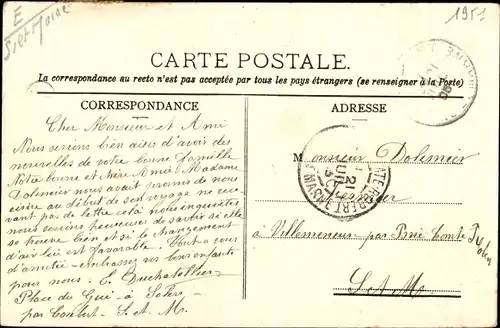 E
S et Marne
1951
CARTE POSTALE.
La correspondance au recto n'est pas acceptée par tous les pays étrangers (se renseigner à la Poste)
CORRESPONDANCE
ADRESSE
Cher Monsieur et Ami
Nous serions bien aises d'avoir des
nouvelles de votre bonne famille
Notre bonne et chère Amie Madame
Dolimier nous avait promis de nous
écrire au début de son voyage ne rece-
vant pas de lettre celà nous inquiète
nous serions heureuses de savoir si elle
se trouve bien et si le changement
d'air lui est favorable. Tout à vous
d'amitié - embrassez vos bons enfants
pour nous : E. Duchatellier
Place du Gué - à
par Coubert - S. et M.
Monsieur Dolimier
à Villemeneux par Brie Comte
S. et M.
BRIE-COMTE-ROBERT
S. MARNE
21
05